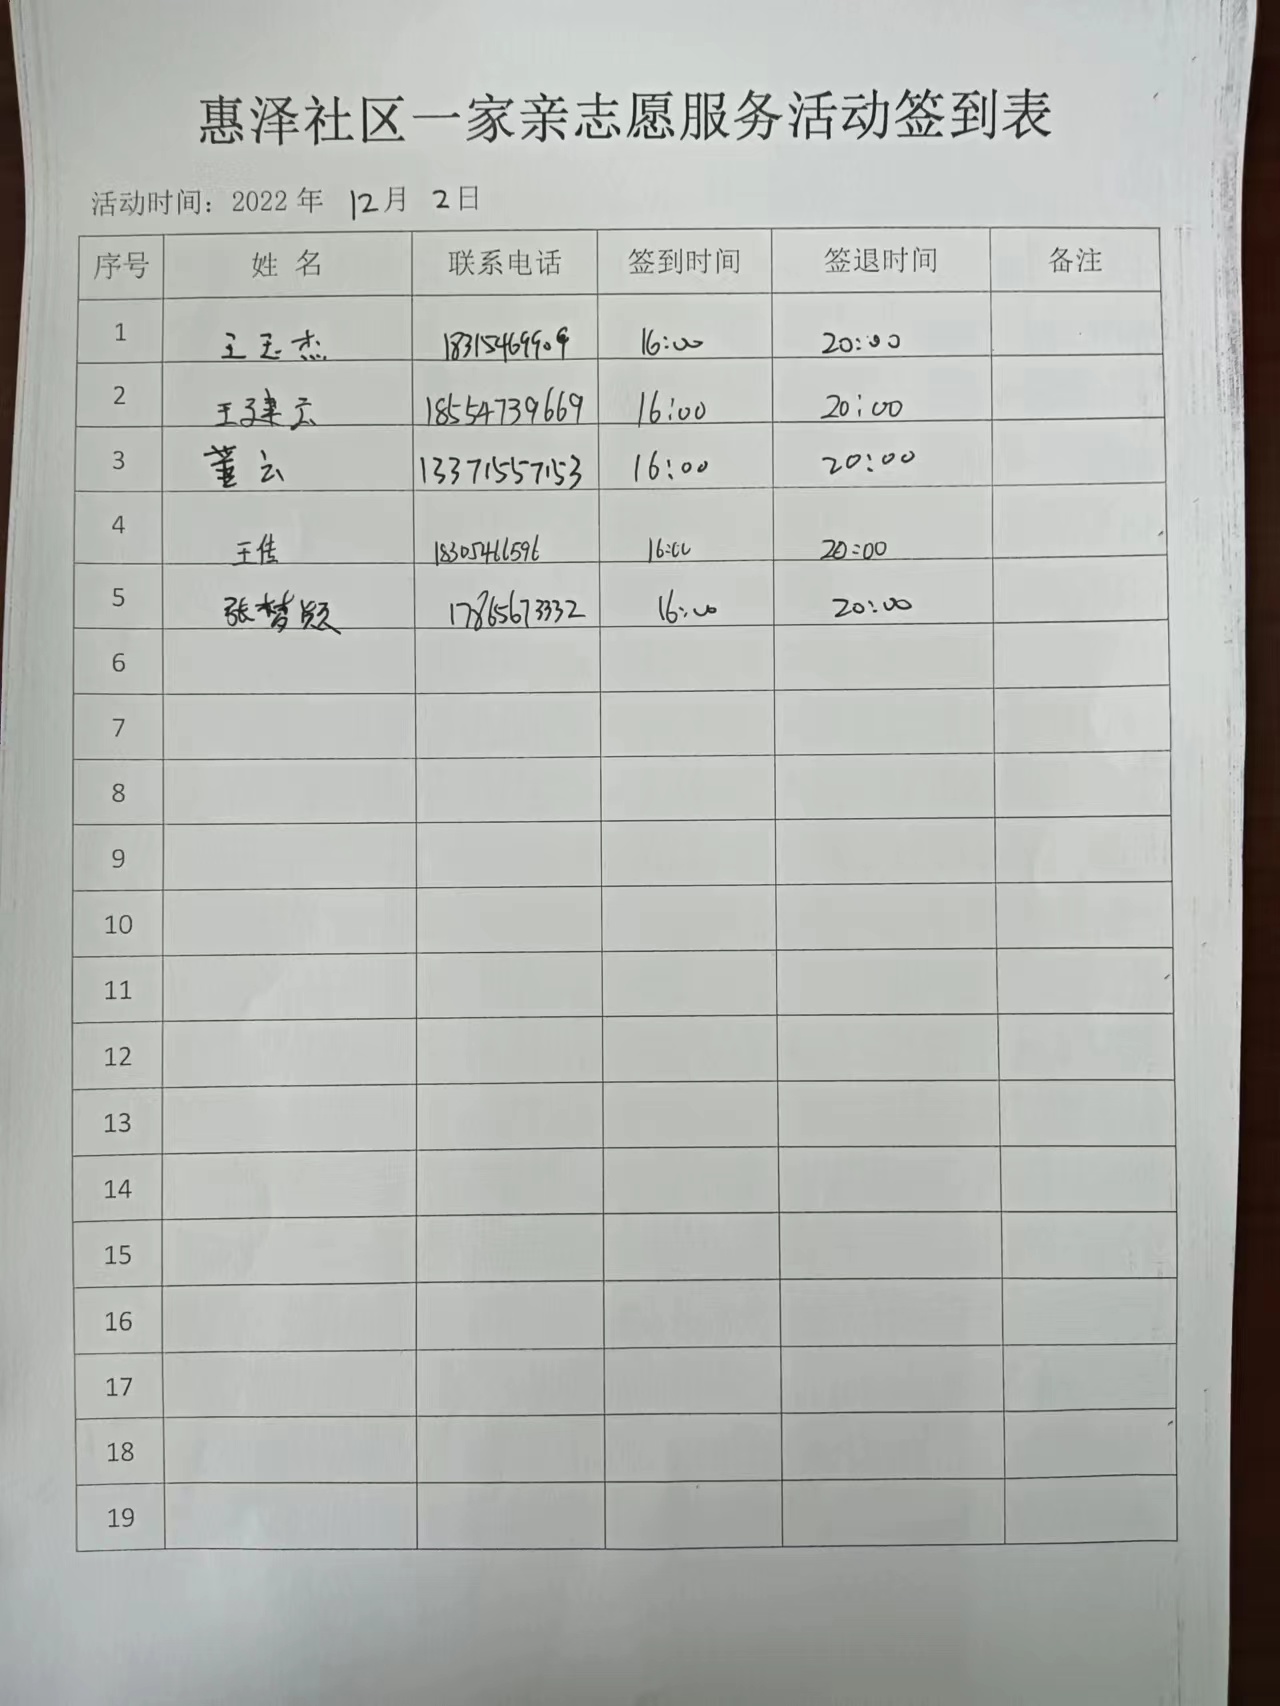 惠泽社区一家亲志愿服务活动签到表
活动时间：2022 年 12月 2日
序号 姓 名 联系电话 签到时间 签退时间 备注
1 王玉杰 18315469909 16:00 20:00
2 王建云 18554739669 16:00 20:00
3 董云 13371557153 16:00 20:00
4 王佳 18305466596 16:00 20:00
5 张梦颖 17865673332 16:00 20:00
6
7
8
9
10
11
12
13
14
15
16
17
18
19